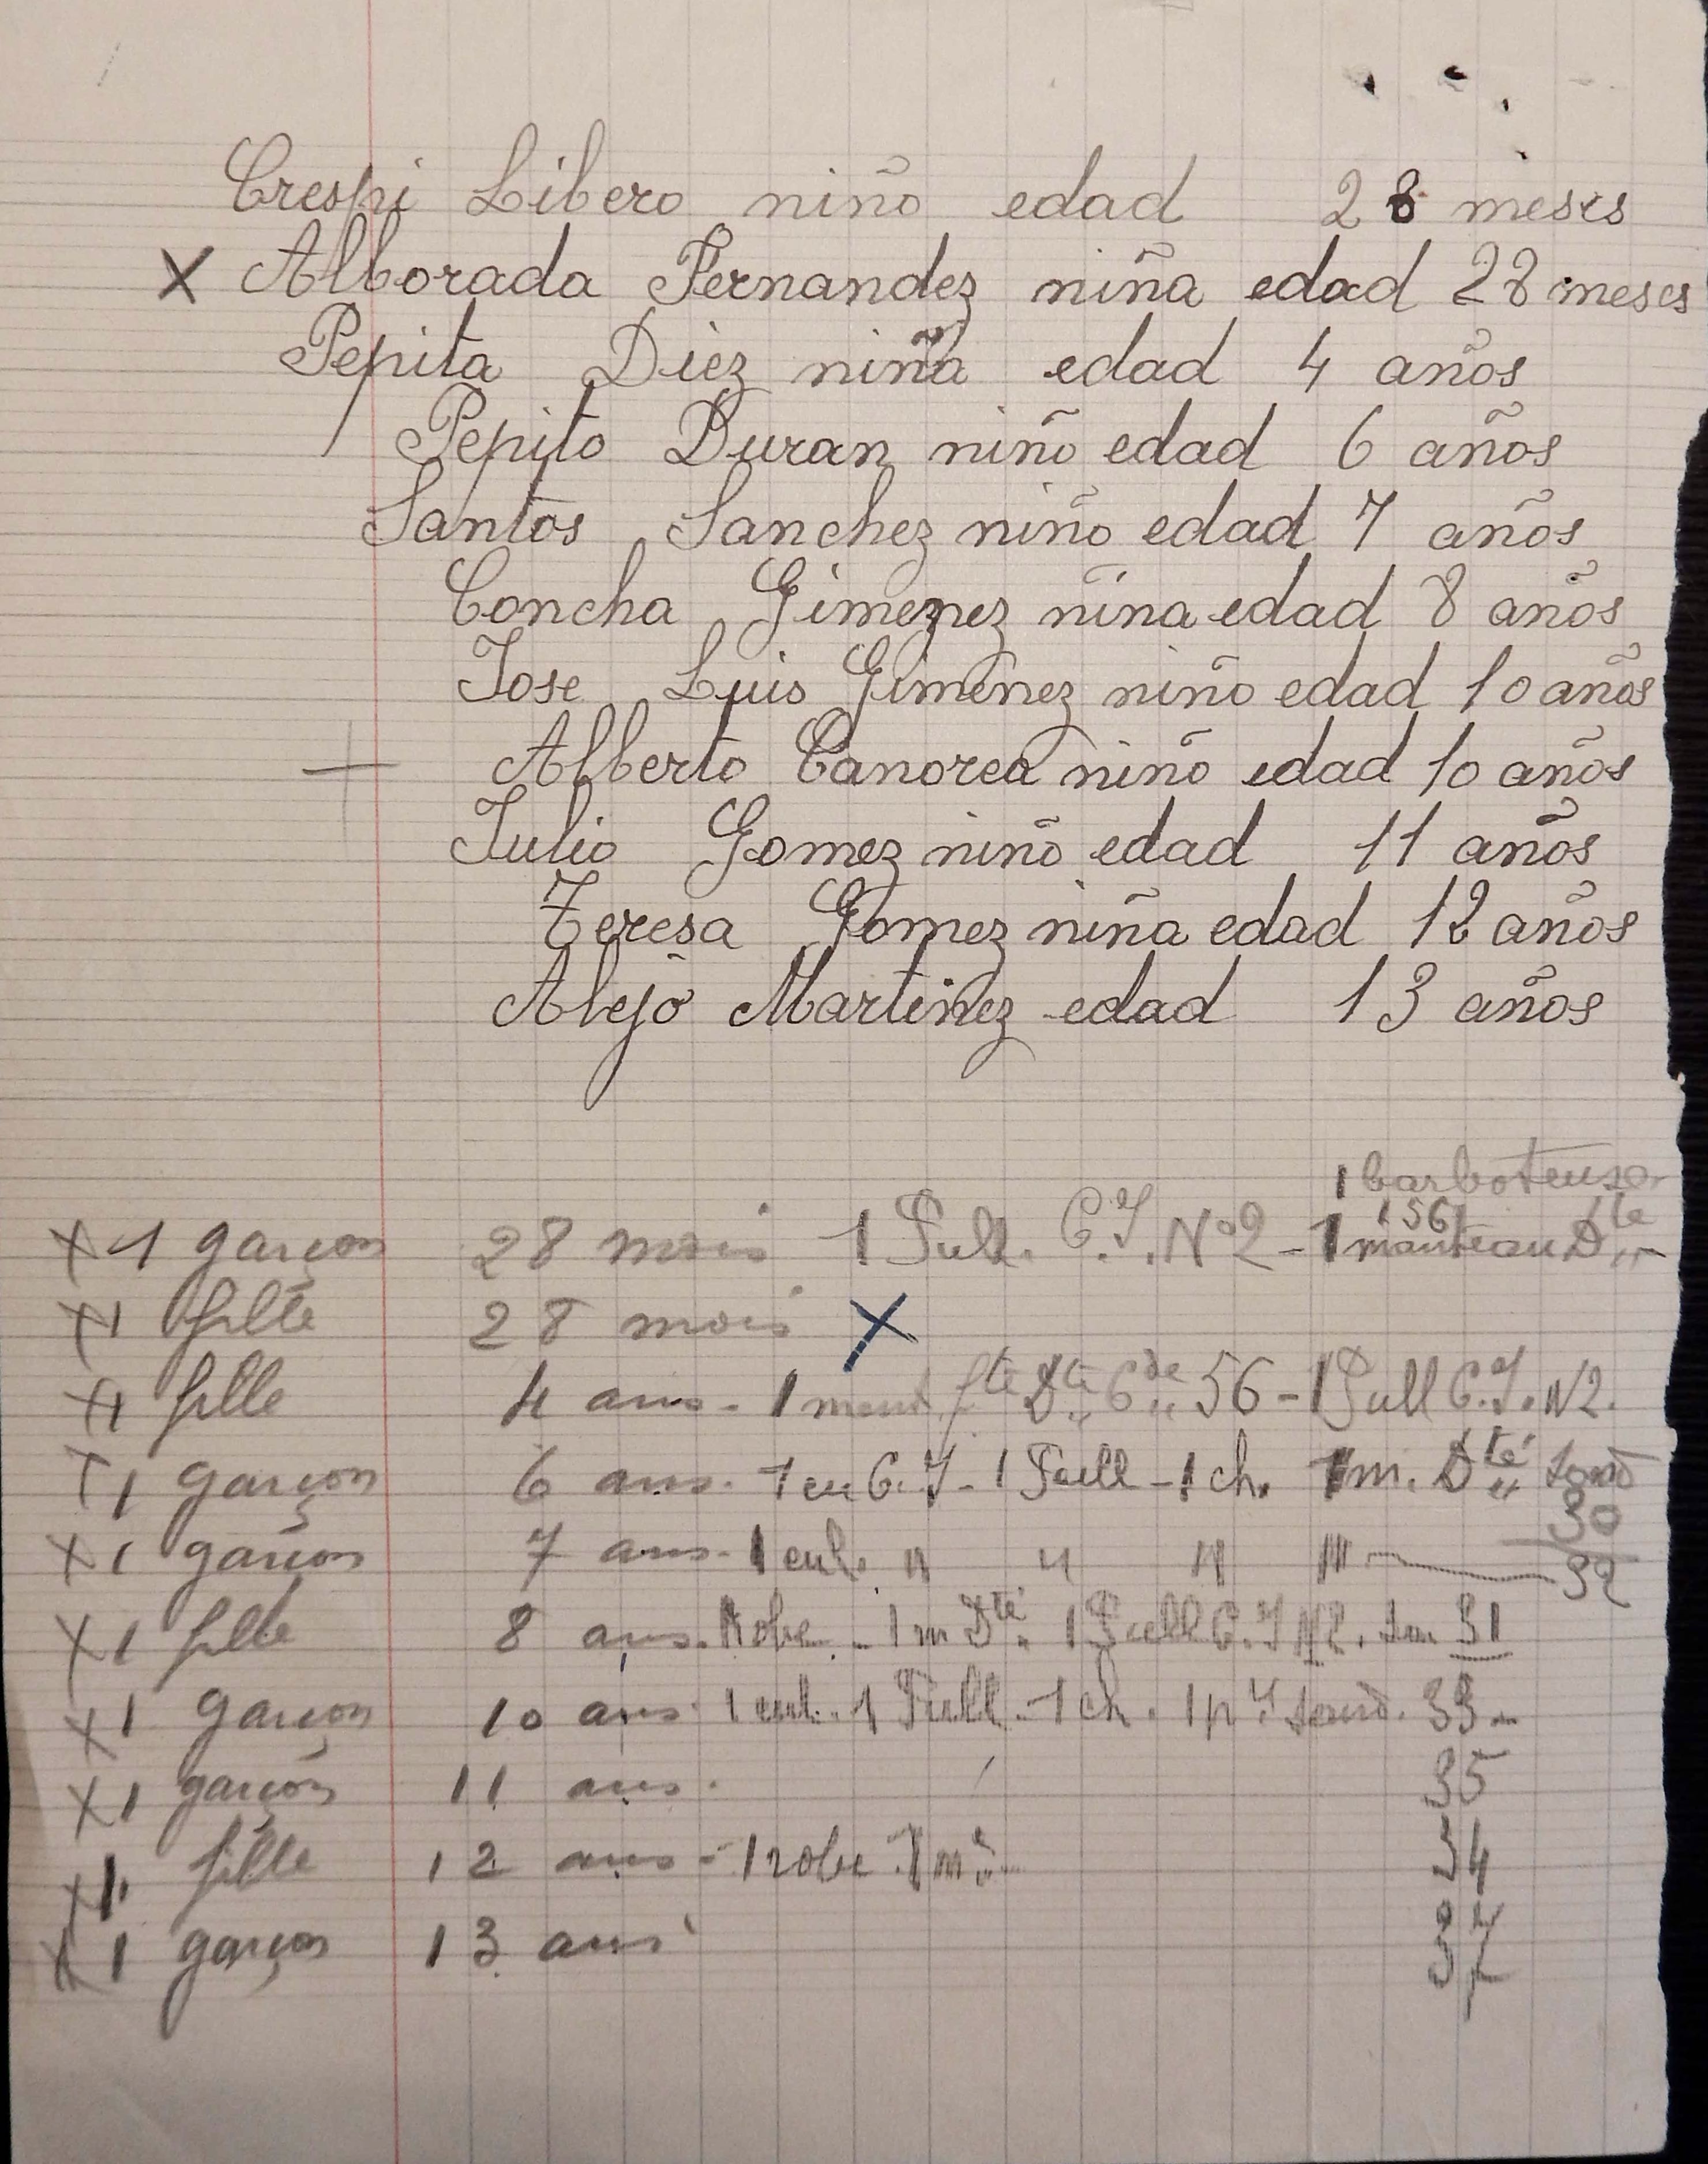 Crespi Libero niño edad 28 meses
X Alborada Fernandez niña edad 28 meses
Pepita Diez niña edad 4 años
Pepito Duran niño edad 6 años
Santos Sanchez niño edad 7 años
Concha Gimenez niña edad 8 años
Jose Luis Gimenez niño edad 10 años
+ Alberto Canorea niño edad 10 años
Julio Gomez niño edad 11 años
Teresa Gomez niña edad 12 años
Alejo Martinez edad 13 años
1 barboteuse
X 1 garçon 28 mois 1 Pull. C.J. N°2 - 1 manteau Dte
X 1 fille 28 mois X
X 1 fille 4 ans - 1 fte Dte 56 - 1 Pull C.J. N2.
1 garçon 6 ans. 1 cu C.J - 1 Pull - 1 ch. 1 m. Dté
30
X 1 garçon 7 ans. 1 cul. " " " " 32
X 1 fille 8 ans. Robe - 1 m Dté. 1 Pull C.J N2. 31
X 1 garçon 10 ans. 1 cul. 1 Pull - 1 ch. 33
X 1 garçon 11 ans. 35
X 1 fille 12 ans - 1 robe 1 m 34
X 1 garçon 13 ans 37